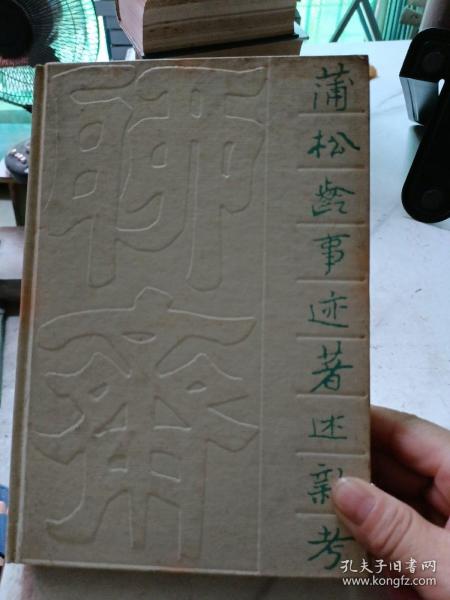 蒲松龄事迹著述新考
聊斋
孔夫子旧书网
www.kongfz.com